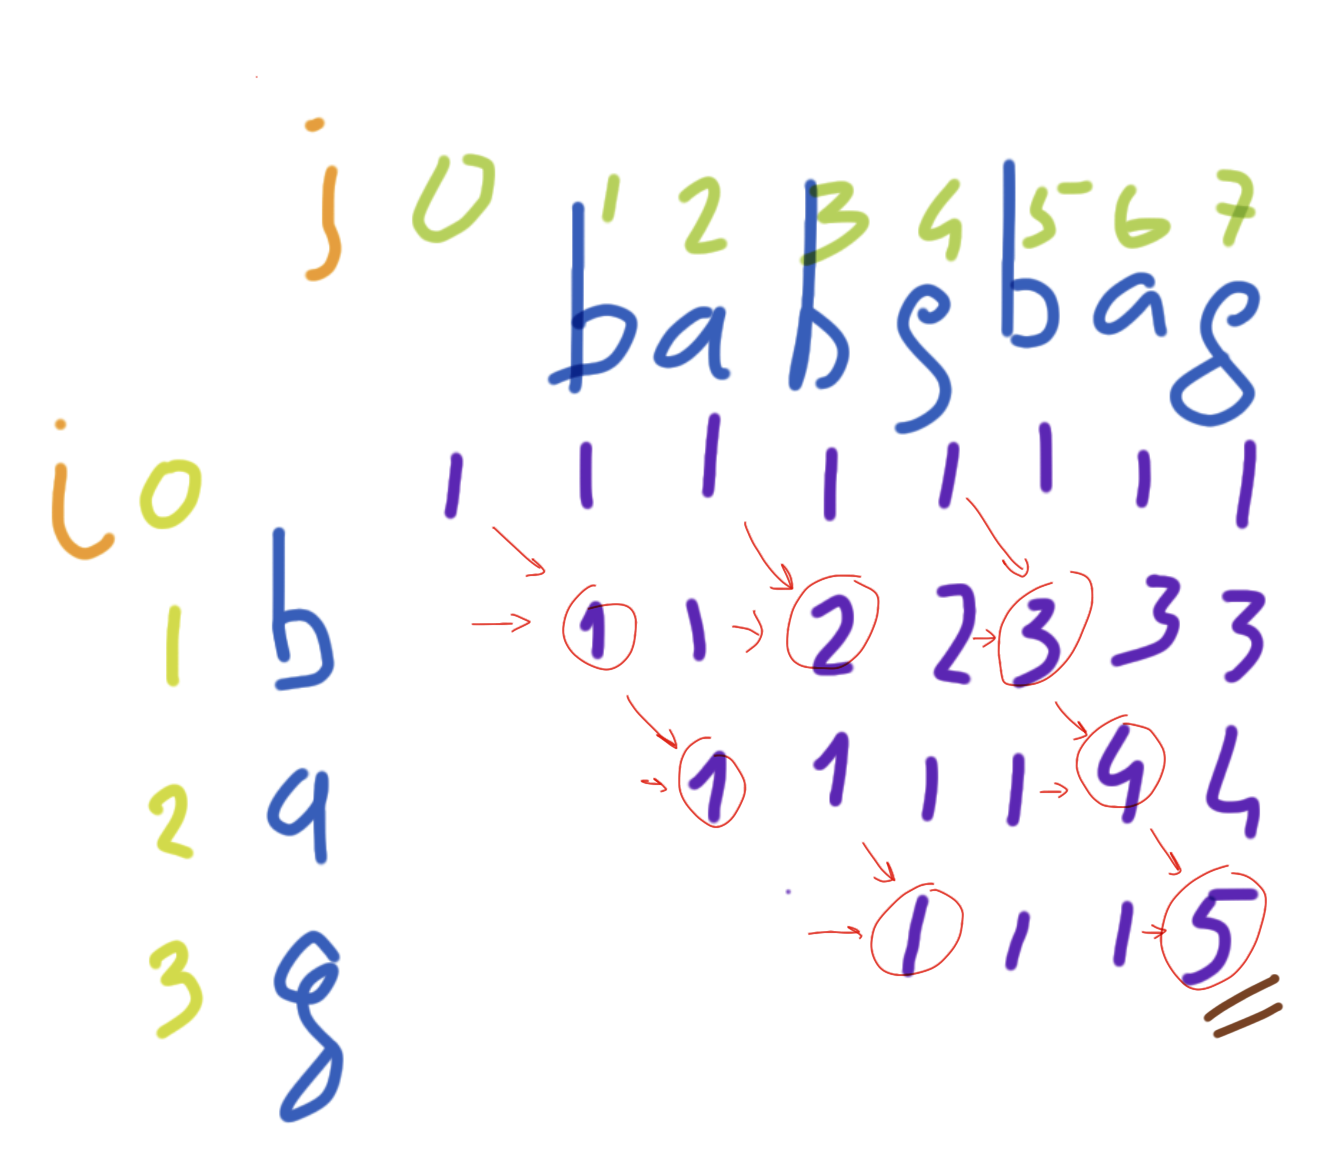 j 0 1 2 3 4 5 6 7
b a b g b a g
i 0 1 1 1 1 1 1 1 1
1 b 1 1 2 2 3 3 3
2 a 1 1 1 1 4 4
3 g 1 1 1 5